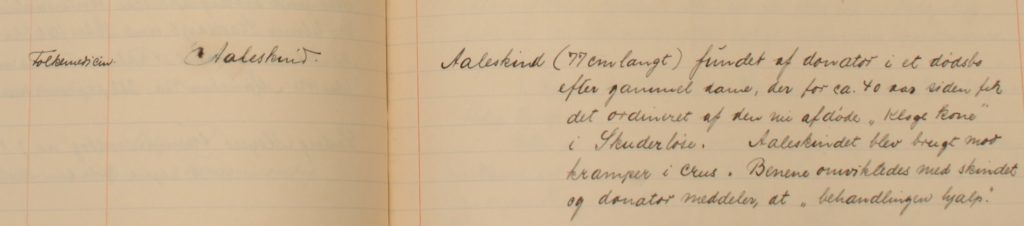 Folkemedicin. Aaleskind. Aaleskind (77 cm langt) fundet af donator i et dødsbo
efter gammel dame, der for ca. 40 aar siden fik
det ordineret af den nu afdøde „Kloge Kone"
i Skuderløse. Aaleskindet blev brugt mod
kramper i crus. Benene omvikledes med skindet
og donator meddeler, at „behandlingen hjalp".